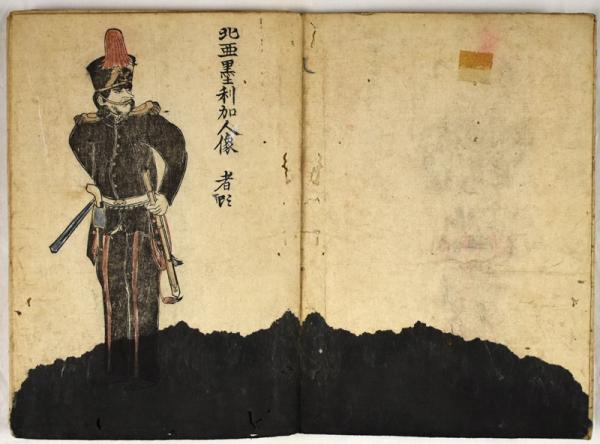 北亜墨利加人像 者